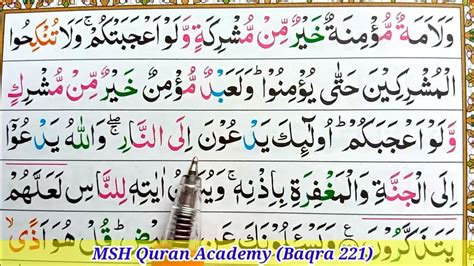 وَلَاَمَةٌ مُّؤْمِنَةٌ خَيْرٌ مِّنْ مُّشْرِكَةٍ وَّلَوْ اَعْجَبَتْكُمْ ۚ وَلَا تُنْكِحُوا
الْمُشْرِكِيْنَ حَتّٰى يُؤْمِنُوْا ؕ وَلَعَبْدٌ مُّؤْمِنٌ خَيْرٌ مِّنْ مُّشْرِكٍ
وَّلَوْ اَعْجَبَكُمْ ؕ اُولٰٓئِكَ يَدْعُوْنَ اِلَى النَّارِ ۖۚ وَاللّٰهُ يَدْعُوْٓا
اِلَى الْجَنَّةِ وَالْمَغْفِرَةِ بِاِذْنِهٖ ۚ وَيُبَيِّنُ اٰيٰتِهٖ لِلنَّاسِ لَعَلَّهُمْ
يَتَذَكَّرُوْنَ وَيَسْـَٔلُوْنَكَ عَنِ قُلْ هُوَ اَذًى
MSH Quran Academy (Baqra 221)